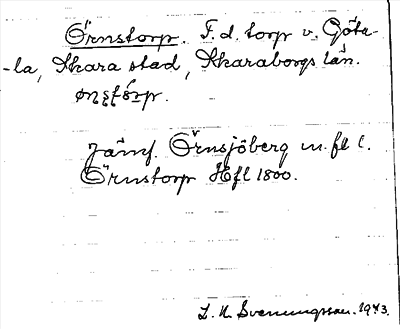 Örnstorp. F. d. torp v. Göta-
-la, Skara stad, Skaraborgs län.
Jämf. Örnsjöberg m. fl l.
Örnstorp Hfl 1800.
L. N. Svenungsson. 1973.